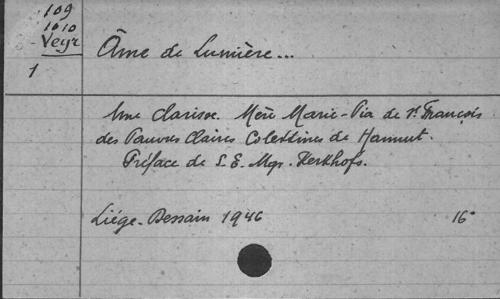 109
1010
Veyr
1
Âme de Lumière...
Une clarisse. Mère Marie-Pia de St François
des Pauvres Claires Colettines de Hannut.
Préface de S. E. Mgr. Kerkhofs.
Liége-Dessain 1946 16°